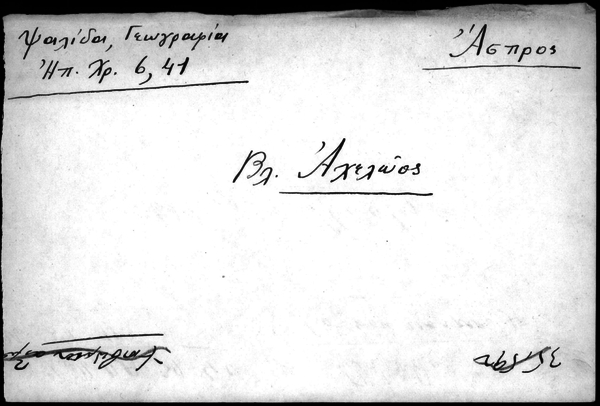 Ψαλίδα, Γεωγραφία
Ἠπ. Χρ. 6, 41
Ἄσπρος
Βλ. Ἀχελῶος